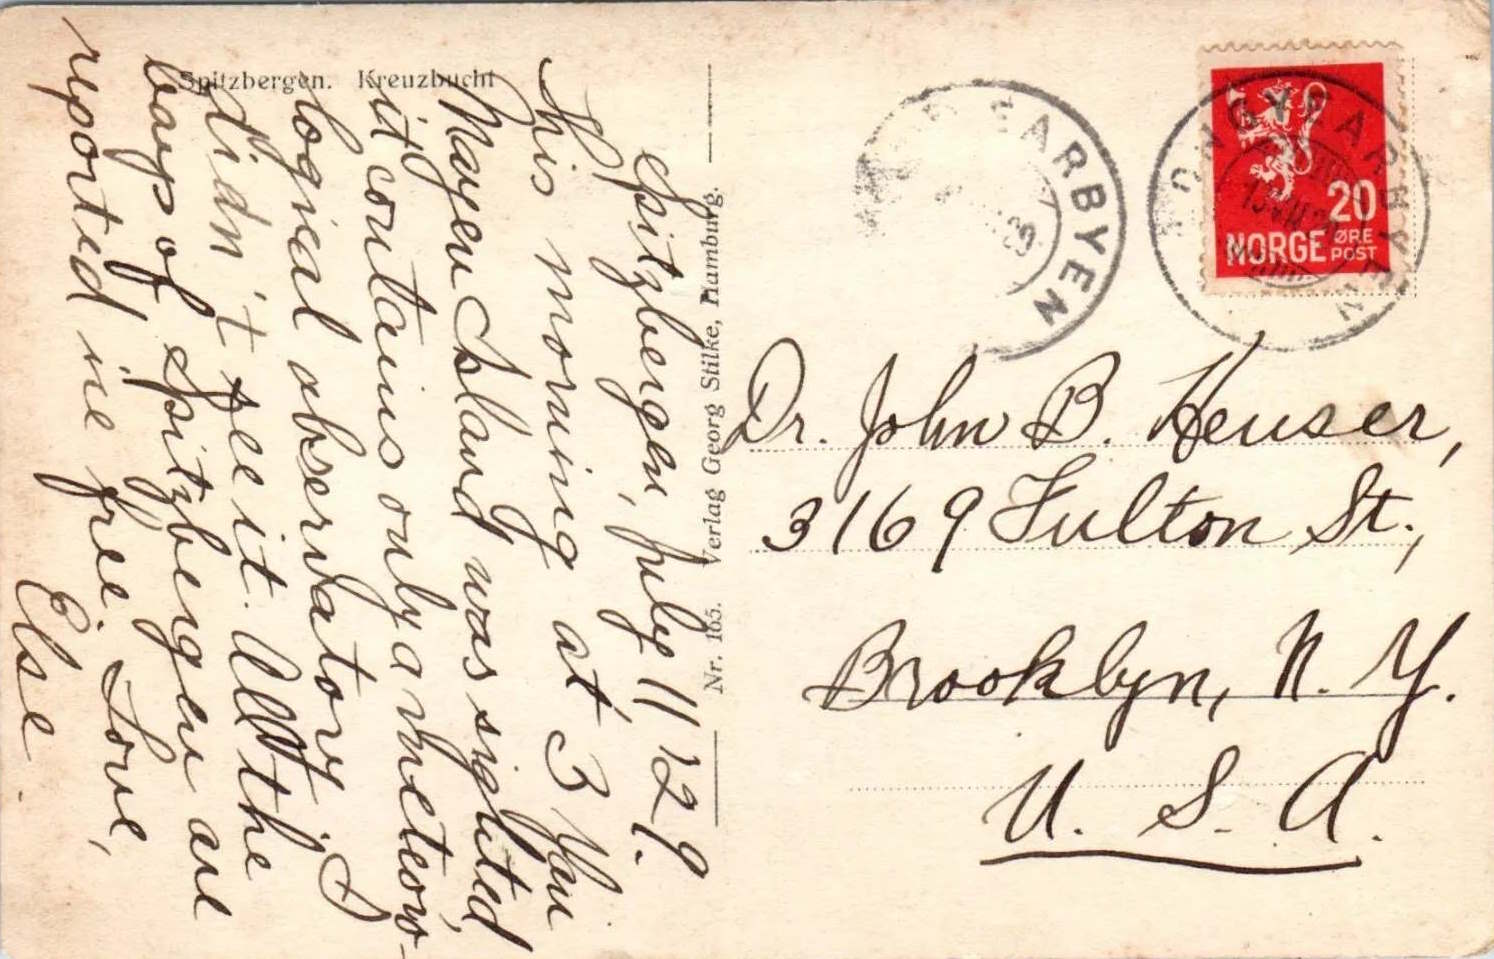 Spitzbergen. Kreuzbucht
Spitzbergen, July 11 '29.
This morning at 3 Yan
Mayen Island was sighted,
it contains only a meteoro-
logical observatory. I
didn't see it. All the
bays of Spitzbergen are
reported ice free. Love,
Else.
Nr. 165. Verlag Georg Stilke, Hamburg.
LONGYEARBYEN
LONGYEARBYEN
20
NORGE ØRE
POST
Dr. John B. Heuser,
3169 Fulton St.,
Brooklyn, N. Y.
U. S. A.